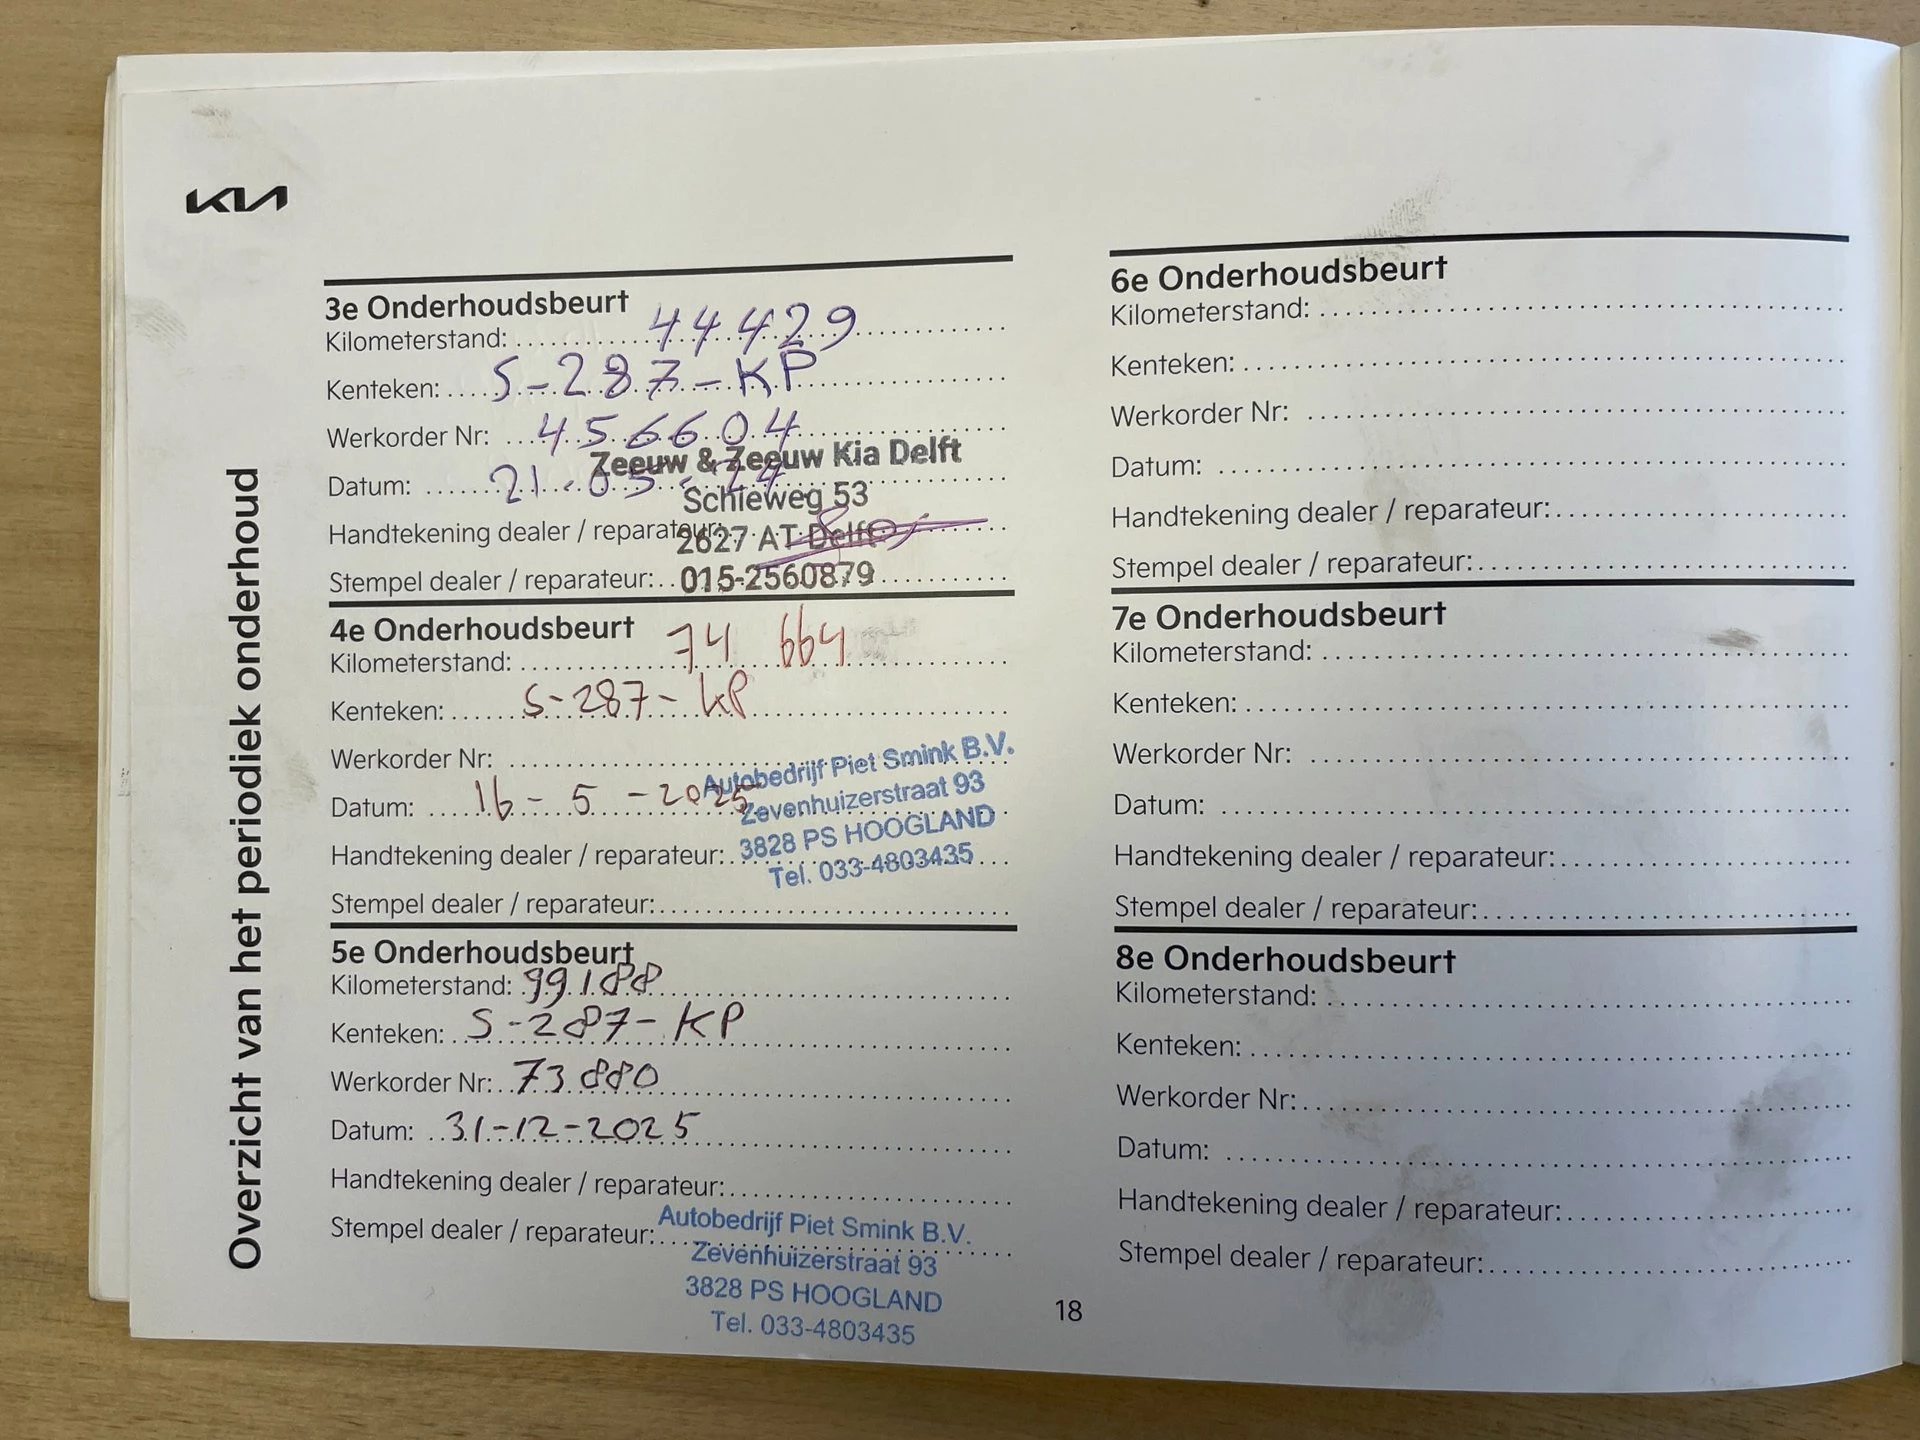 KIA
Overzicht van het periodiek onderhoud
3e Onderhoudsbeurt
Kilometerstand: 44429
Kenteken: S-287-KP
Werkorder Nr: 456604
Zeeuw & Zeeuw Kia Delft
Datum: 21-05-24
Schieweg 53
Handtekening dealer / reparateur:
2627 AT Delft
Stempel dealer / reparateur:
015-2560879
4e Onderhoudsbeurt
Kilometerstand: 74 664
Kenteken: S-287-KP
Werkorder Nr:
Autobedrijf Piet Smink B.V.
Datum: 16-5-2025
Zevenhuizerstraat 93
3828 PS HOOGLAND
Handtekening dealer / reparateur:
Tel. 033-4803435
Stempel dealer / reparateur:
5e Onderhoudsbeurt
Kilometerstand: 99188
Kenteken: S-287-KP
Werkorder Nr: 73880
Datum: 31-12-2025
Handtekening dealer / reparateur:
Stempel dealer / reparateur:
Autobedrijf Piet Smink B.V.
Zevenhuizerstraat 93
3828 PS HOOGLAND
Tel. 033-4803435
6e Onderhoudsbeurt
Kilometerstand:
Kenteken:
Werkorder Nr:
Datum:
Handtekening dealer / reparateur:
Stempel dealer / reparateur:
7e Onderhoudsbeurt
Kilometerstand:
Kenteken:
Werkorder Nr:
Datum:
Handtekening dealer / reparateur:
Stempel dealer / reparateur:
8e Onderhoudsbeurt
Kilometerstand:
Kenteken:
Werkorder Nr:
Datum:
Handtekening dealer / reparateur:
Stempel dealer / reparateur:
18